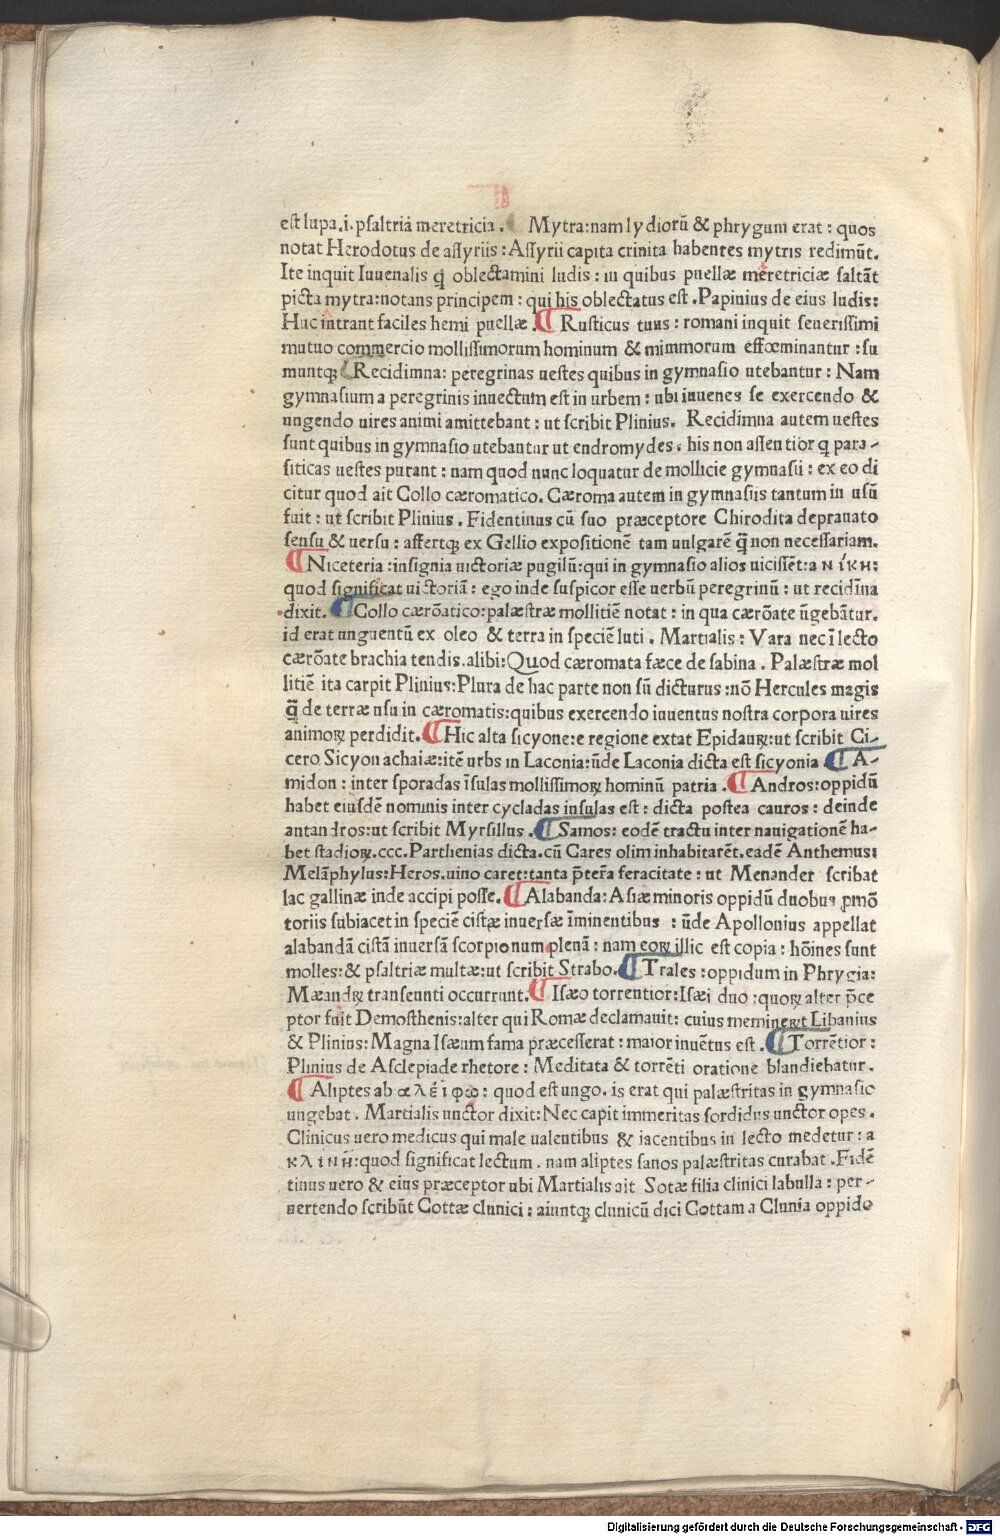 est lupa.i.psaltriā meretricia. Mytra:nam lydiorū & phrygum erat : quos
notat Herodotus de assyriis : Assyrii capita crinita habentes mytris redimūt.
Ite inquit Iuuenalis ꝙ oblectamini ludis : in quibus puellæ meretriciæ saltāt
picta mytra:notans principem : qui his oblectatus est .Papinius de eius ludis:
Huc intrant faciles hemi puellæ . ¶ Rusticus tuus : romani inquit seuerissimi
mutuo commercio mollissimorum hominum & mimmorum effœminantur :su
muntqȝ Recidimna: peregrinas uestes quibus in gymnasio utebantur : Nam
gymnasium a peregrinis inuectum est in urbem : ubi iuuenes se exercendo &
ungendo uires animi amittebant : ut scribit Plinius. Recidimna autem uestes
sunt quibus in gymnasio utebantur ut endromydes : his non assentior ꝙ para-
siticas uestes putant : nam quod nunc loquatur de mollicie gymnasii : ex eo di
citur quod ait Collo cæromatico. Cæroma autem in gymnasiis tantum in usū
fuit : ut scribit Plinius . Fidentinus cū suo præceptore Chirodita deprauato
sensu & uersu : affertqȝ ex Gellio expositionē tam uulgarē q̄ non necessariam.
¶ Niceteria :insignia uictoriæ pugilū:qui in gymnasio alios uicissēt:a νίκη:
quod significat uictoriā : ego inde suspicor esse uerbū peregrinū : ut recidīna
dixit. ¶ Collo cærōatico:palæstræ mollitiē notat : in qua cærōate ūgebātur.
id erat unguentū ex oleo & terra in speciē luti . Martialis : Vara nec ī lecto
cærōate brachia tendis.alibi:Quod cæromata fæce de sabina . Palæstræ mol
litiē ita carpit Plinius:Plura de hac parte non sū dicturus :nō Hercules magis
q̄ de terræ usu in cæromatis:quibus exercendo iuuentus nostra corpora uires
animoꝝ perdidit. ¶ Hic alta sicyone:e regione extat Epidauꝝ:ut scribit Ci-
cero Sicyon achaiæ:itē urbs in Laconia:ūde Laconia dicta est sicyonia ¶ A-
midon : inter sporadas īsulas mollissimoꝝ hominū patria . ¶ Andros:oppidū
habet eiusdē nominis inter cycladas insulas est : dicta postea cauros : deinde
antandros:ut scribit Myrsillus . ¶ Samos: eodē tractu inter nauigationē ha-
bet stadioꝝ.ccc.Parthenias dicta.cū Cares olim inhabitarēt.eadē Anthemus:
Melāphylus:Heros.uino caret:tanta p̄terea feracitate : ut Menander scribat
lac gallinæ inde accipi posse. ¶ Alabanda:Asiæ minoris oppidū duobus ꝓmō
toriis subiacet in speciē cistæ inuersæ īminentibus : ūde Apollonius appellat
alabandā cistā inuersā scorpionum plenā : nam eoꝝ illic est copia : hōines sunt
molles:& psaltriæ multæ:ut scribit Strabo. ¶ Trales :oppidum in Phrygia:
Mæandꝝ transeunti occurrunt. ¶ Isæo torrentior:Isæi duo :quoꝝ alter p̄ce
ptor fuit Demosthenis:alter qui Romæ declamauit: cuius meminerūt Libanius
& Plinius: Magna Isæum fama præcesserat : maior inuētus est . ¶ Torrētior :
Plinius de Asclepiade rhetore : Meditata & torrēti oratione blandiebatur.
¶ Aliptes ab αλέιφω: quod est ungo. is erat qui palæstritas in gymnasio
ungebat . Martialis unctor dixit: Nec capit immeritas sordidus unctor opes .
Clinicus uero medicus qui male ualentibus & iacentibus in lecto medetur : a
κλινή:quod significat lectum . nam aliptes sanos palæstritas curabat .Fidē
tinus uero & eius præceptor ubi Martialis ait Sotæ filia clinici labulla : per-
uertendo scribūt Cottæ clunici : aiuntqȝ clunicū dici Cottam a Clunia oppido
Digitalisierung gefördert durch die Deutsche Forschungsgemeinschaft - DFG